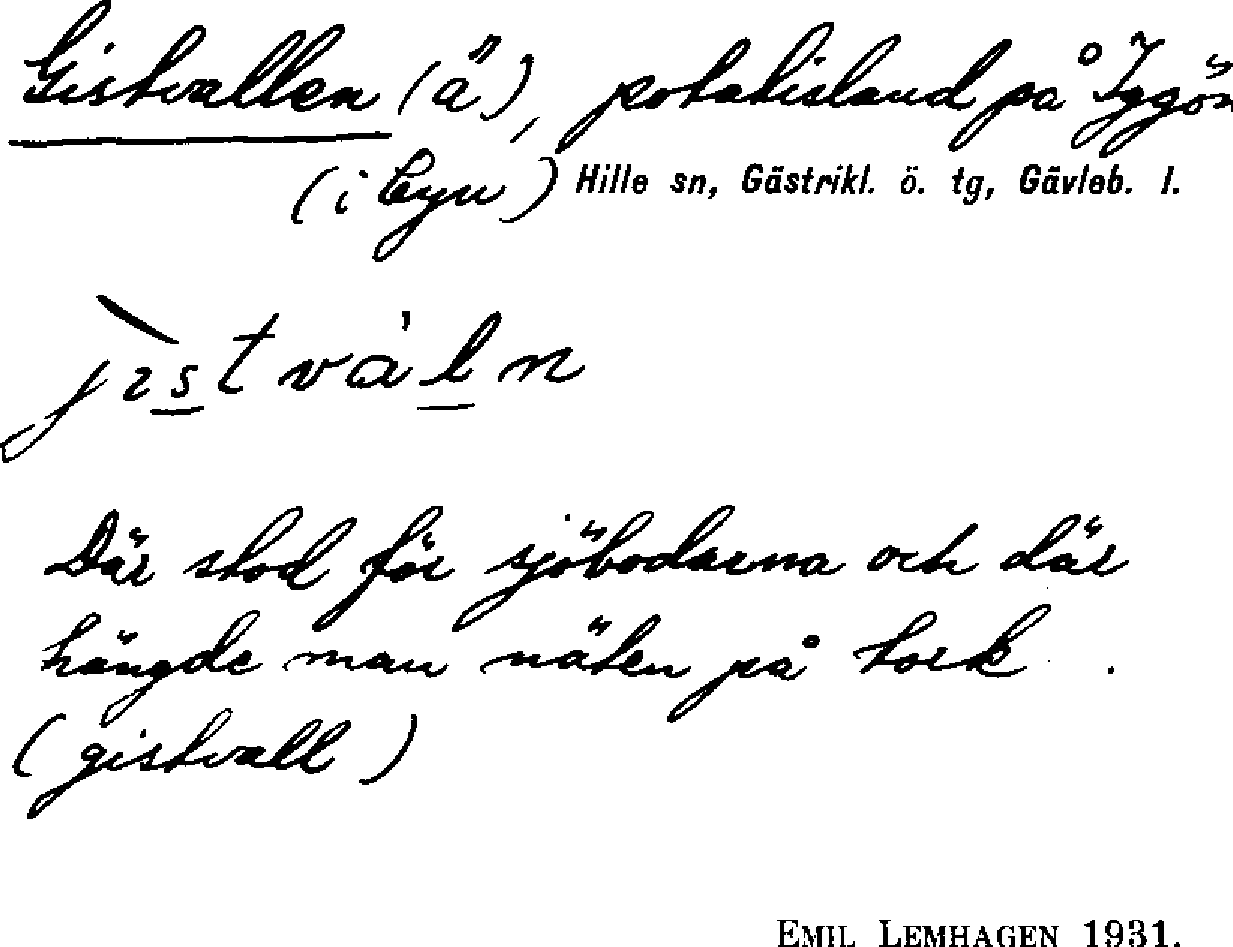 Gistvallen (ä), potatisland på Iggön
(i byn) Hille sn, Gästrikl. ö. tg, Gävleb. l.
jìstvál̲n
Där stod för sjöbodarna och där
hängde man näten på tork.
(gistvall)
EMIL LEMHAGEN 1931.